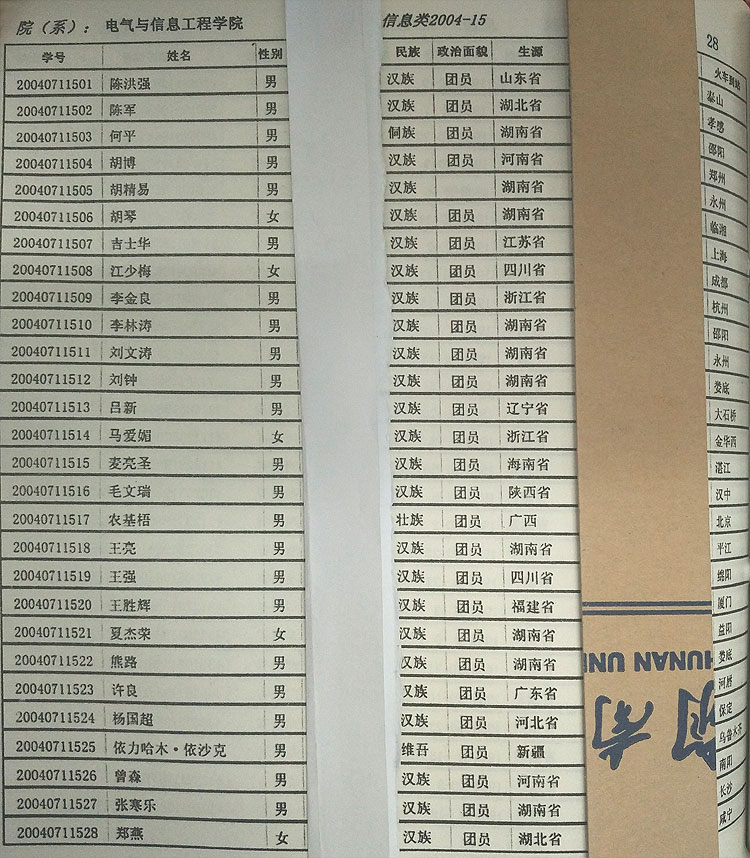 院（系）： 电气与信息工程学院 信息类2004-15 28
学号 姓名 性别 民族 政治面貌 生源 火车到站
20040711501 陈洪强 男 汉族 团员 山东省 泰山
20040711502 陈军 男 汉族 团员 湖北省 孝感
20040711503 何平 男 侗族 团员 湖南省 邵阳
20040711504 胡博 男 汉族 团员 河南省 郑州
20040711505 胡精易 男 汉族 湖南省 永州
20040711506 胡琴 女 汉族 团员 湖南省 临湘
20040711507 吉士华 男 汉族 团员 江苏省 上海
20040711508 江少梅 女 汉族 团员 四川省 成都
20040711509 李金良 男 汉族 团员 浙江省 杭州
20040711510 李林涛 男 汉族 团员 湖南省 邵阳
20040711511 刘文涛 男 汉族 团员 湖南省 永州
20040711512 刘钟 男 汉族 团员 湖南省 娄底
20040711513 吕新 男 汉族 团员 辽宁省 大石桥
20040711514 马爱媚 女 汉族 团员 浙江省 金华西
20040711515 麦亮圣 男 汉族 团员 海南省 湛江
20040711516 毛文瑞 男 汉族 团员 陕西省 汉中
20040711517 农基梧 男 壮族 团员 广西 北京
20040711518 王亮 男 汉族 团员 湖南省 平江
20040711519 王强 男 汉族 团员 四川省 绵阳
20040711520 王胜辉 男 汉族 团员 福建省 厦门
20040711521 夏杰荣 女 汉族 团员 湖南省 益阳
20040711522 熊路 男 汉族 团员 湖南省 娄底
20040711523 许良 男 汉族 团员 广东省 河唇
20040711524 杨国超 男 汉族 团员 河北省 保定
20040711525 依力哈木·依沙克 男 维吾 团员 新疆 乌鲁木齐
20040711526 曾森 男 汉族 团员 河南省 南阳
20040711527 张寒乐 男 汉族 团员 湖南省 长沙
20040711528 郑燕 女 汉族 团员 湖北省 咸宁
HUNAN UNI